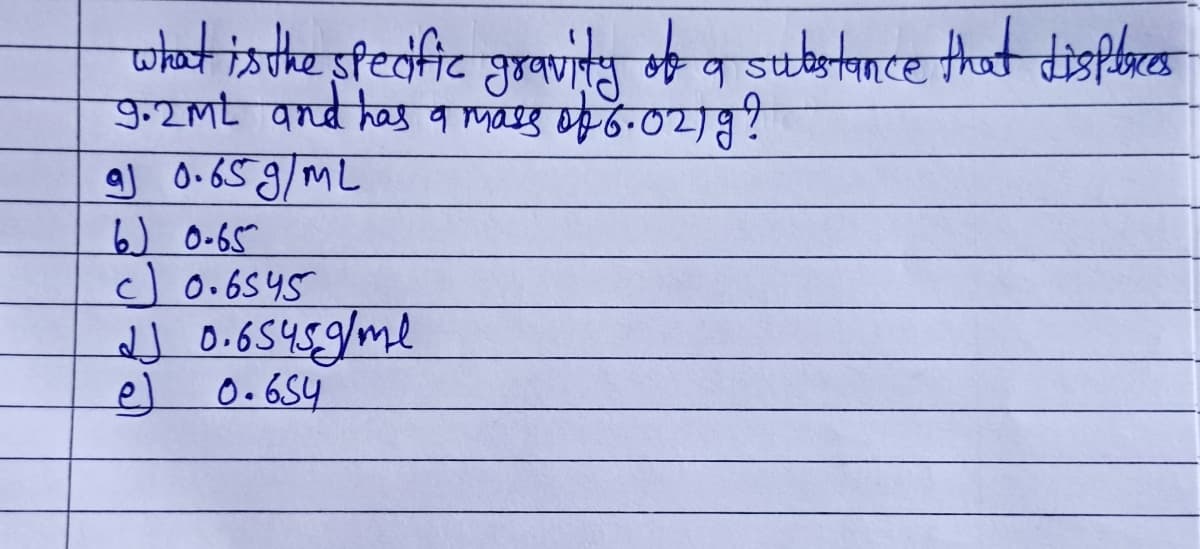 what is the specific gravity of a substance that displaces
9.2mL and has a mass of 6.021g?
a) 0.65 g/mL
b) 0.65
c) 0.6545
d) 0.6545g/ml
e) 0.654